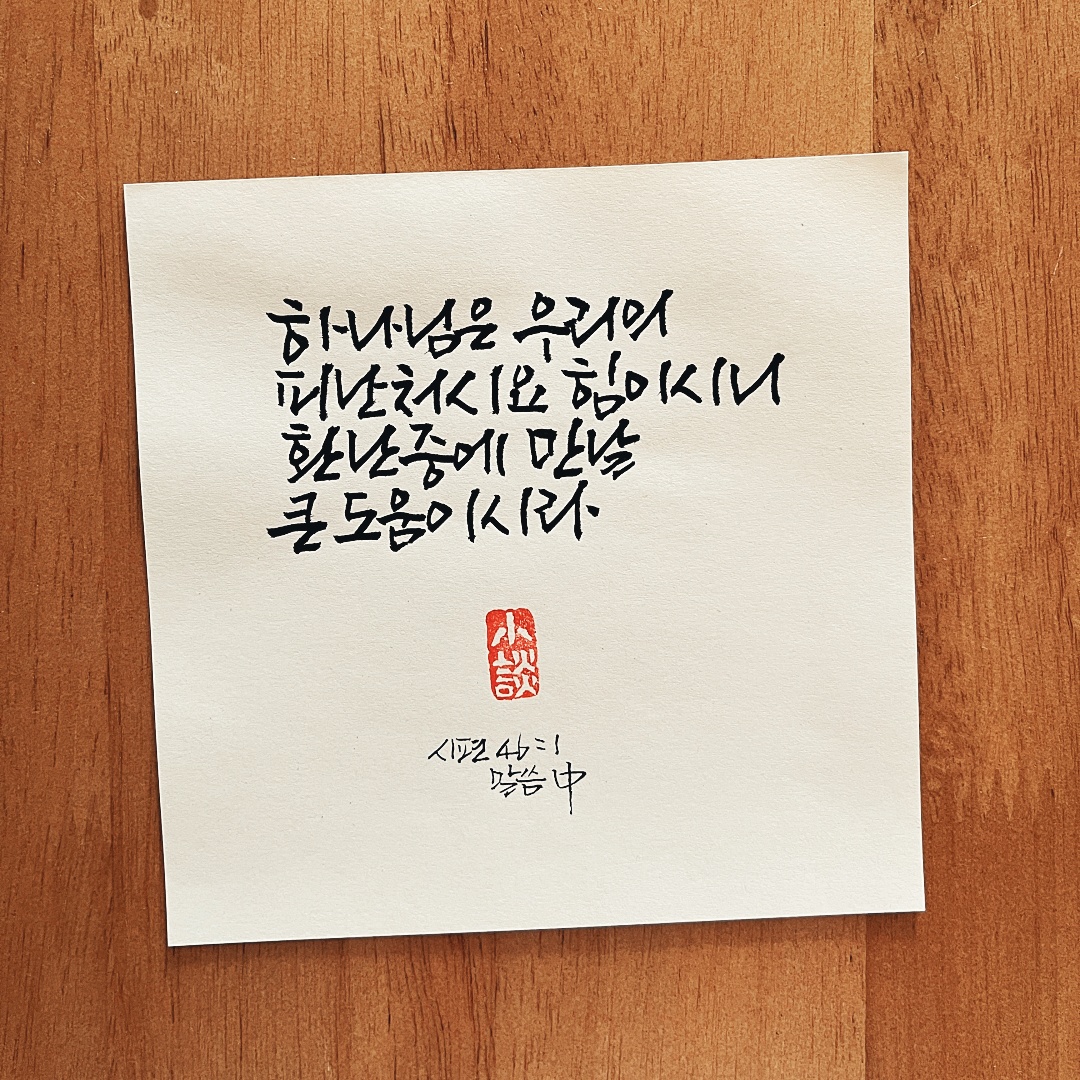 하나님은 우리의
피난처시요 힘이시니
환난중에 만날
큰 도움이시라.
小
談
시편 46:1
말씀 中